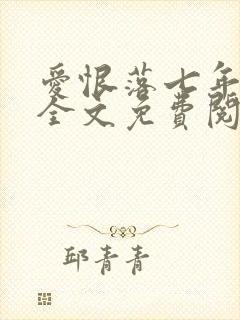 愛恨落七年
全文免費閱
邱青青